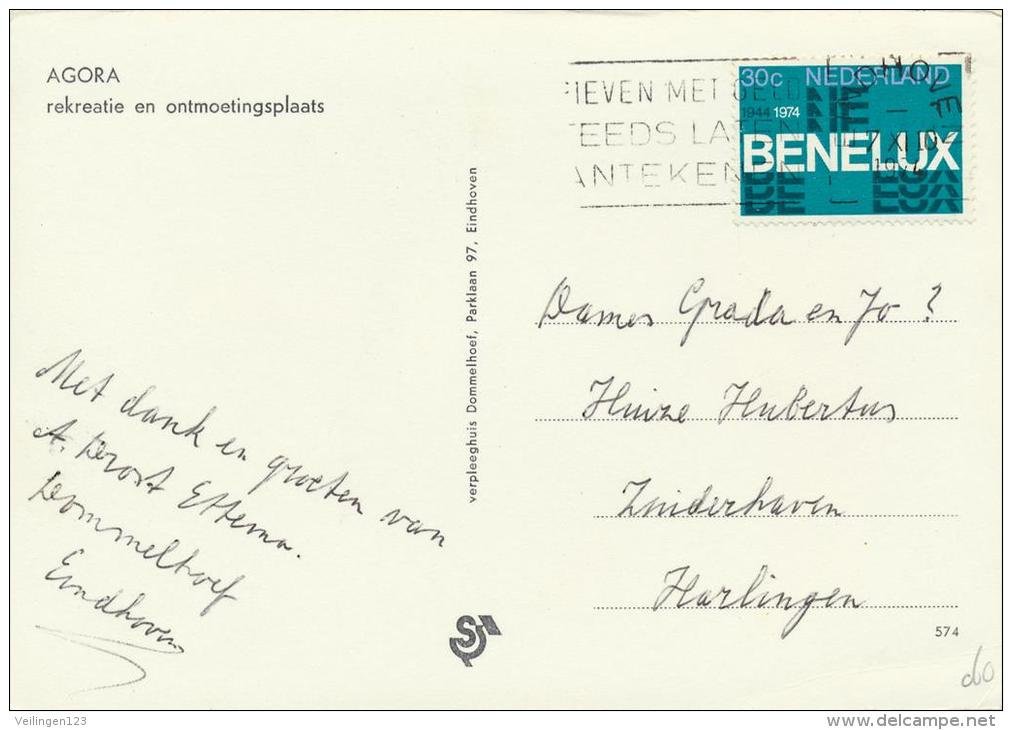 AGORA
rekreatie en ontmoetingsplaats
IEVEN MET GELD
TEEDS LATEN
ANTEKENEN
30c NEDERLAND
1944 1974
BENELUX
7 XI 10
1974
verpleeghuis Dommelhoef, Parklaan 97, Eindhoven
Dames Grada en Jo ?
Huize Hubertus
Zuiderhaven
Harlingen
574
Met dank en groeten van
A. Drost Ettema.
Dommelhoef
Eindhoven
Veilingen123
www.delcampe.net